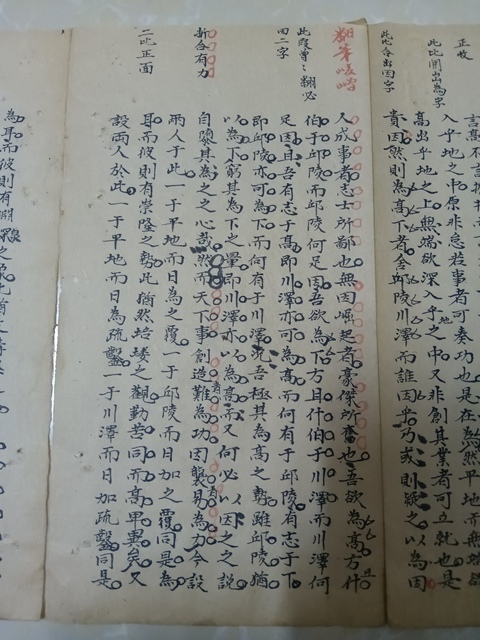 正收
此比開出為字
此比合出因字
入乎地之中原非急若事者可奏功也是在為然平地而無端欲
高出乎地之上無端欲深入乎地之中又非創其業者可立就也是
責因然則為高下者舍邱陵川澤而誰因乎乃或則疑之以為因
翻筆峻峭
翻必
二字
折合有力
二比正面
人成事者志士所鄙也無因崛起者豪傑所奮也吾欲為高方且什
伯于邱陵而邱陵何足因吾欲為下方且什伯于川澤而川澤何
足因且吾有志于高即川澤亦可為高而何有于邱陵有志于下
即邱陵亦可為下而何有于川澤況吾極其為高之勢雖邱陵猶
以為下窮其為下之量即川澤亦以為高而又何必以因之之說
自隳其為之之心哉然而天下事創造者難為功因襲者易為力今設
兩人于此一于平地而日為之覆一于邱陵而日加之覆同是為
耳而彼則有崇隆之勢此猶然培塿之觀勤苦同而高卑異矣又
設兩人於此一于平地而日為疏鑿一于川澤而日加疏鑿同是
為耳而彼則有淵深之象